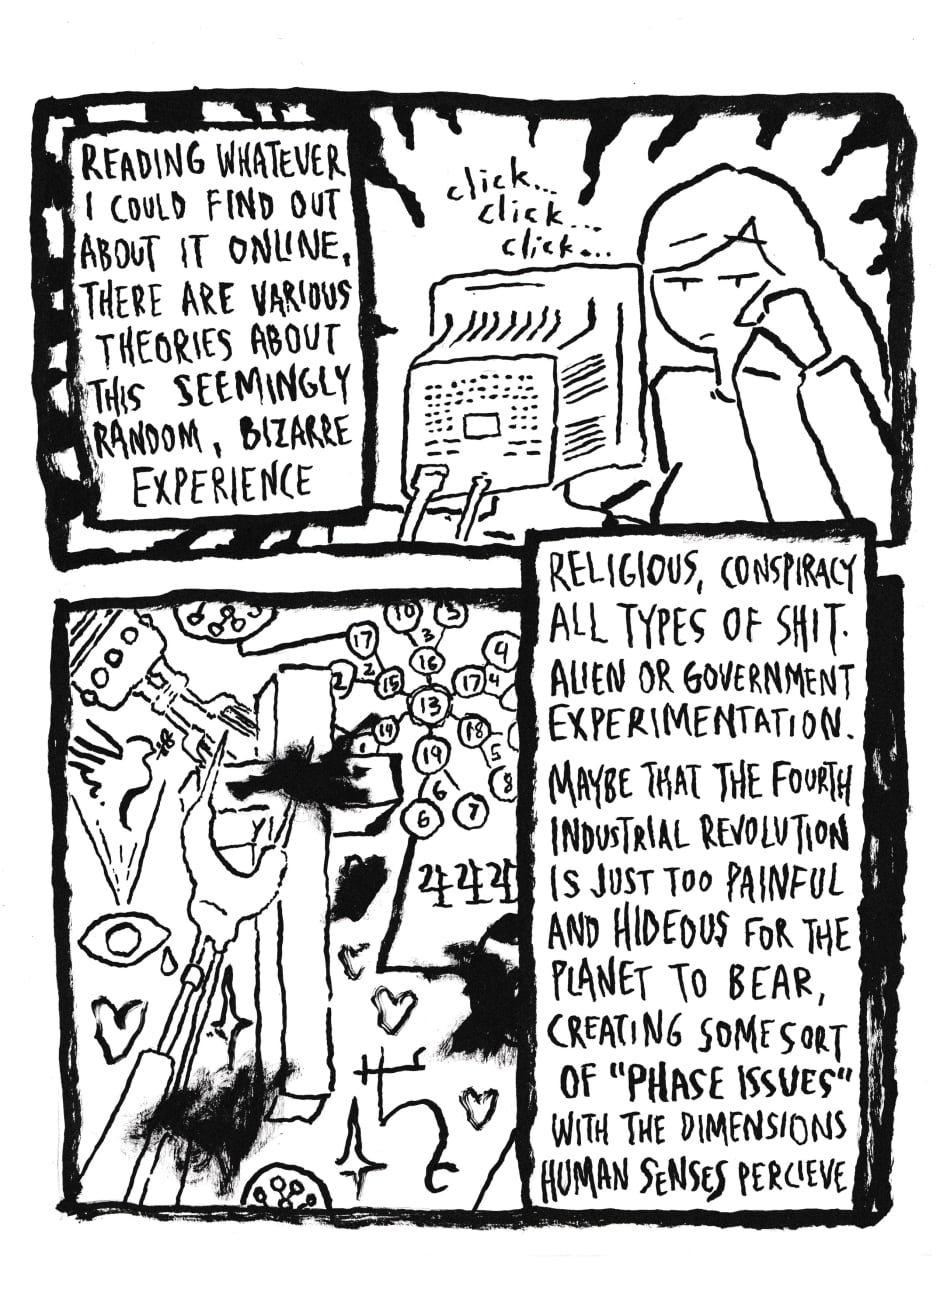 READING WHATEVER
I COULD FIND OUT
ABOUT IT ONLINE,
THERE ARE VARIOUS
THEORIES ABOUT
THIS SEEMINGLY
RANDOM, BIZARRE
EXPERIENCE
click...
click...
click...
RELIGIOUS, CONSPIRACY
ALL TYPES OF SHIT.
ALIEN OR GOVERNMENT
EXPERIMENTATION.
MAYBE THAT THE FOURTH
INDUSTRIAL REVOLUTION
IS JUST TOO PAINFUL
AND HIDEOUS FOR THE
PLANET TO BEAR,
CREATING SOME SORT
OF "PHASE ISSUES"
WITH THE DIMENSIONS
HUMAN SENSES PERCIEVE
10 3
17 3 9
2 2 15 16 17 4
13
19 18
19 5
6 8
6 7